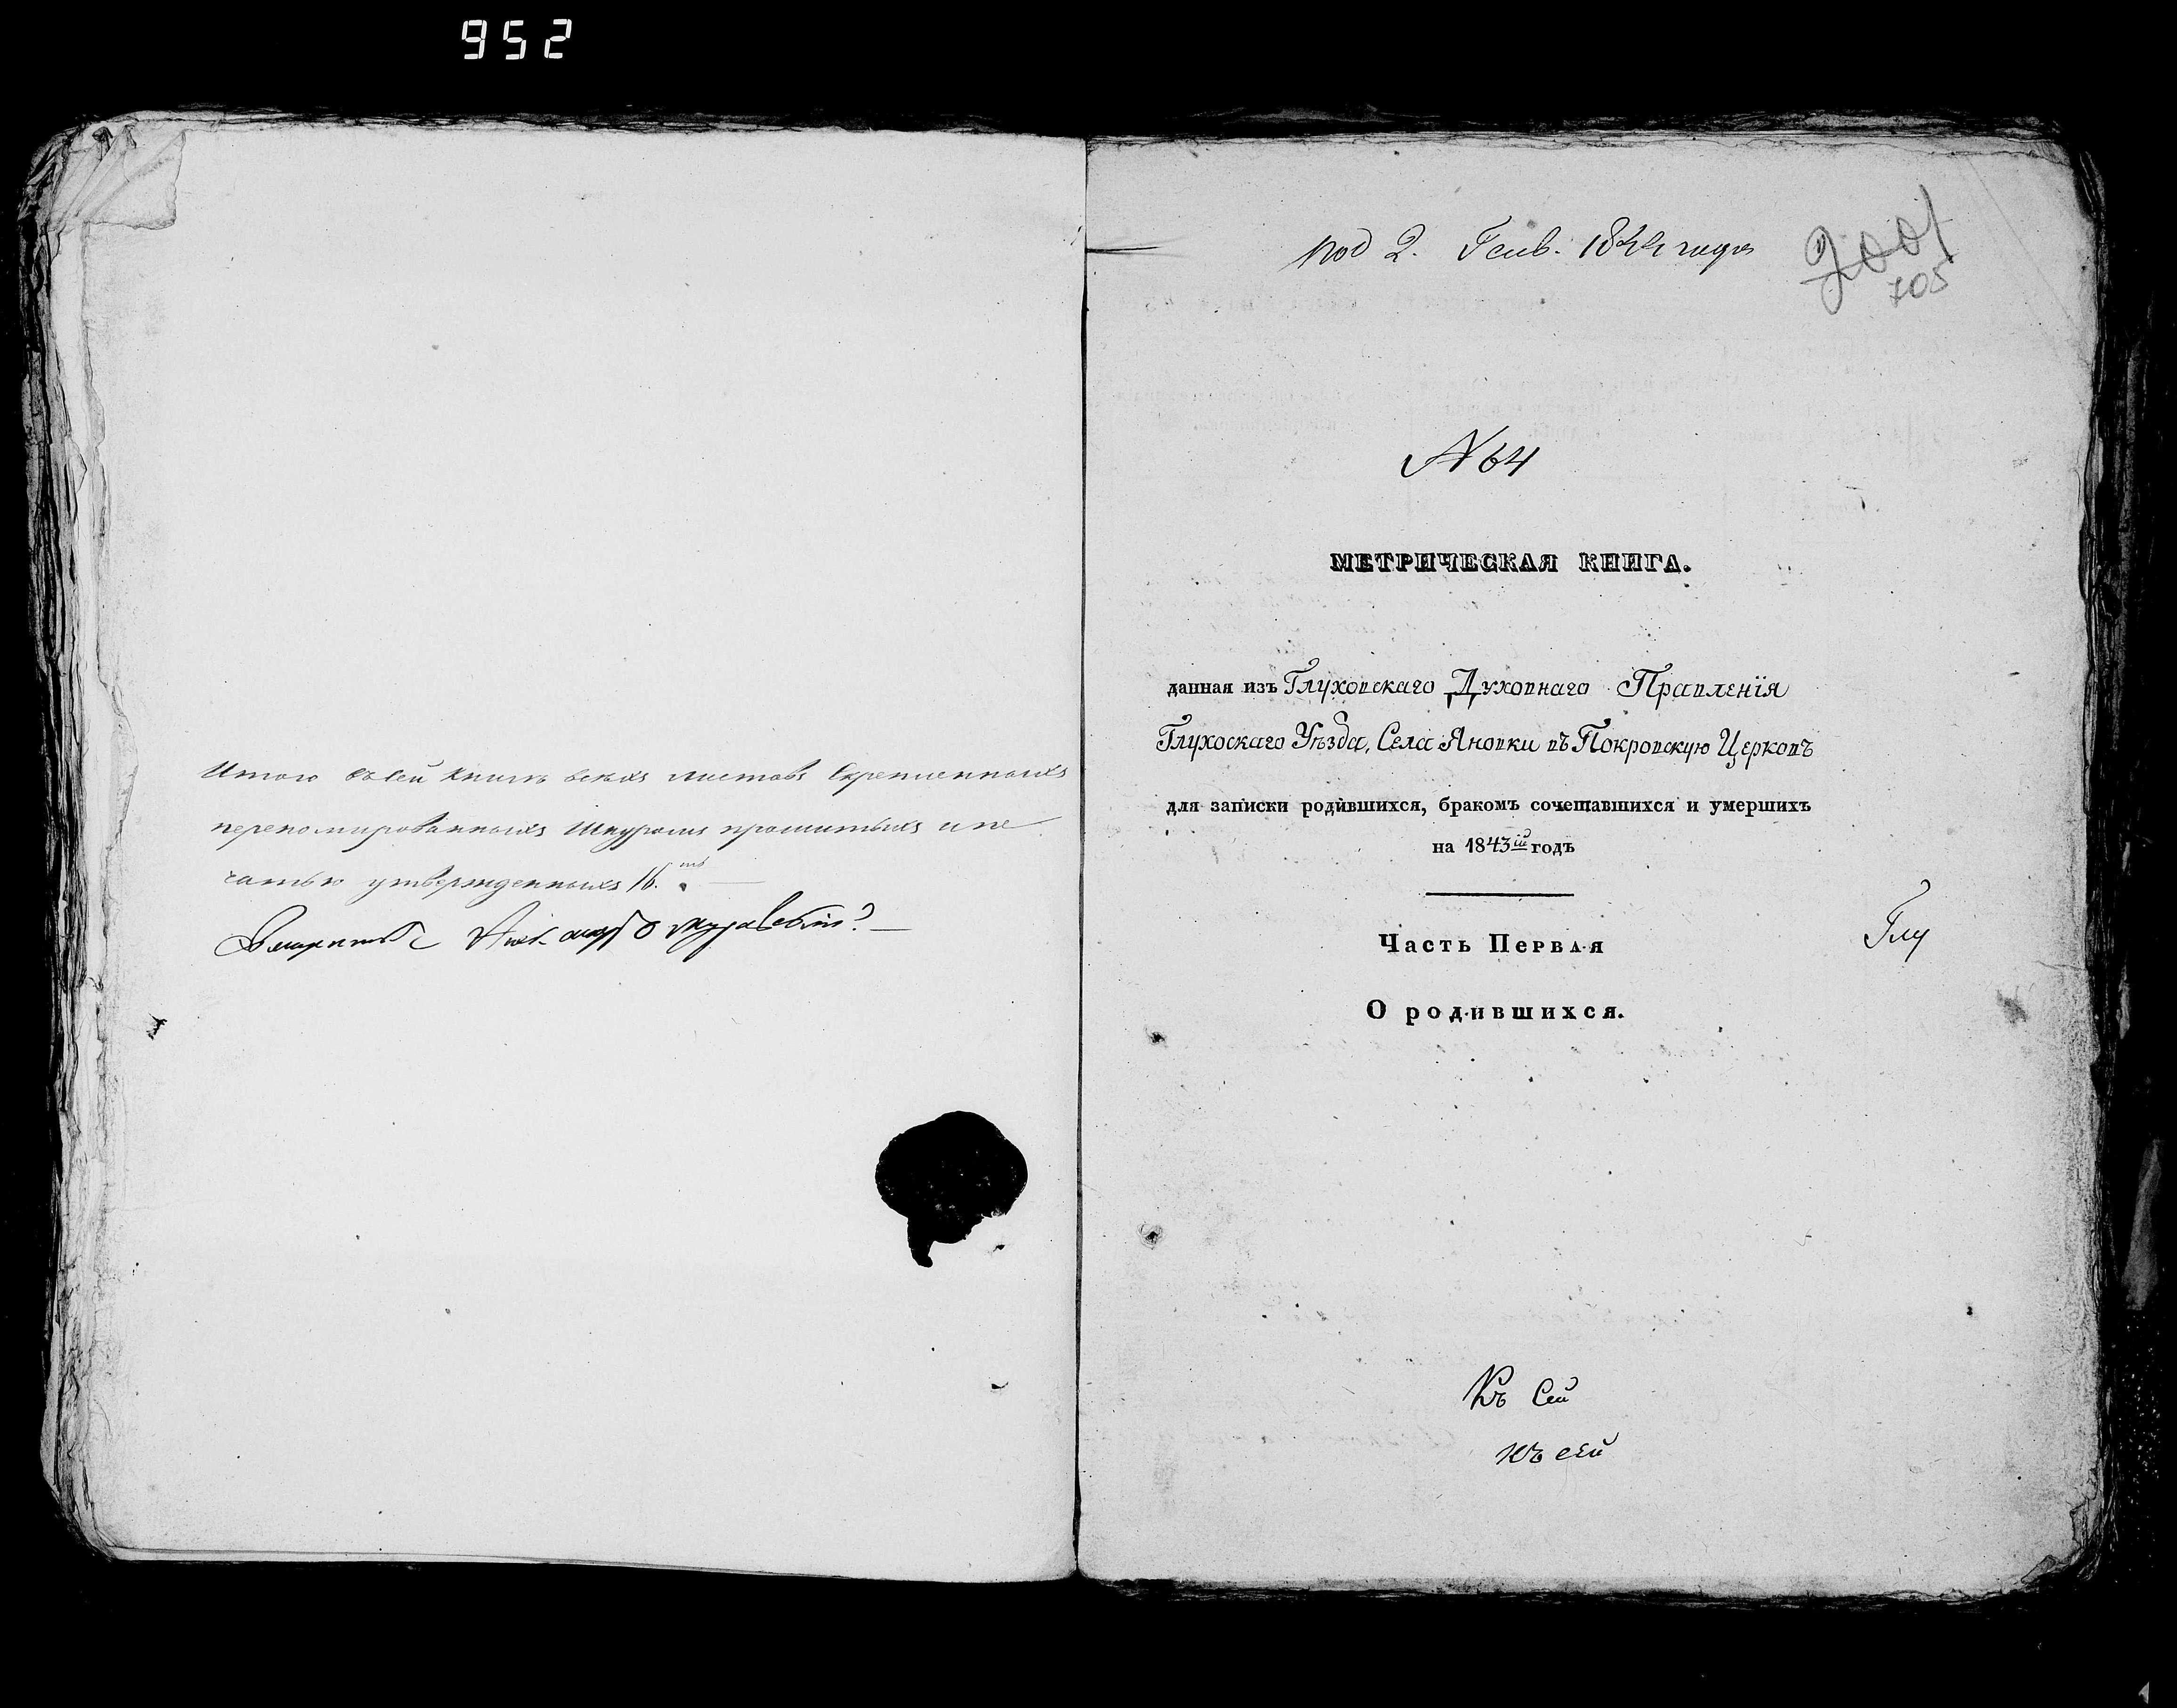 952
Итого въ сей Книгѣ всѣхъ листовъ Скрепленныхъ
переномированныхъ Шнуромъ прошитыхъ и пе
чатью утвержденныхъ 16.
под 2. Генв. 1844 года
2001
705
N 64
МЕТРИЧЕСКАЯ КНИГА.
данная изъ Глуховскаго Духовнаго Правленія
Глухоскаго Уѣзда, Села Яновки въ Покровскую Церковь
для записки родившихся, бракомъ сочетавшихся и умершихъ
на 1843й годъ
Часть Первая
Глу
О родившихся.
Къ Сей
къ сей